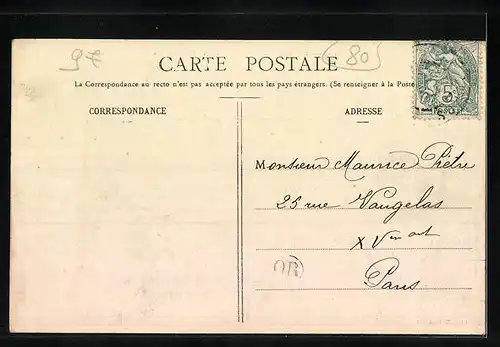 9€
(80)
CARTE POSTALE
La Correspondance au recto n'est pas acceptée par tous les pays étrangers. (Se renseigner à la Poste
CORRESPONDANCE
ADRESSE
Monsieur Maurice Piètre
25 rue Vaugelas
XVme art
Paris
OR
5